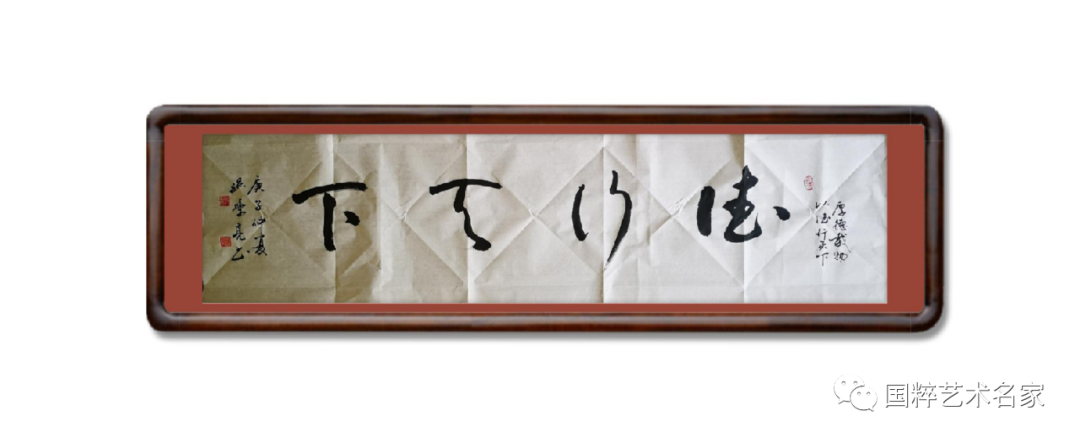 厚德载物
以德行天下
德行天下
庚子仲夏
国粹艺术名家